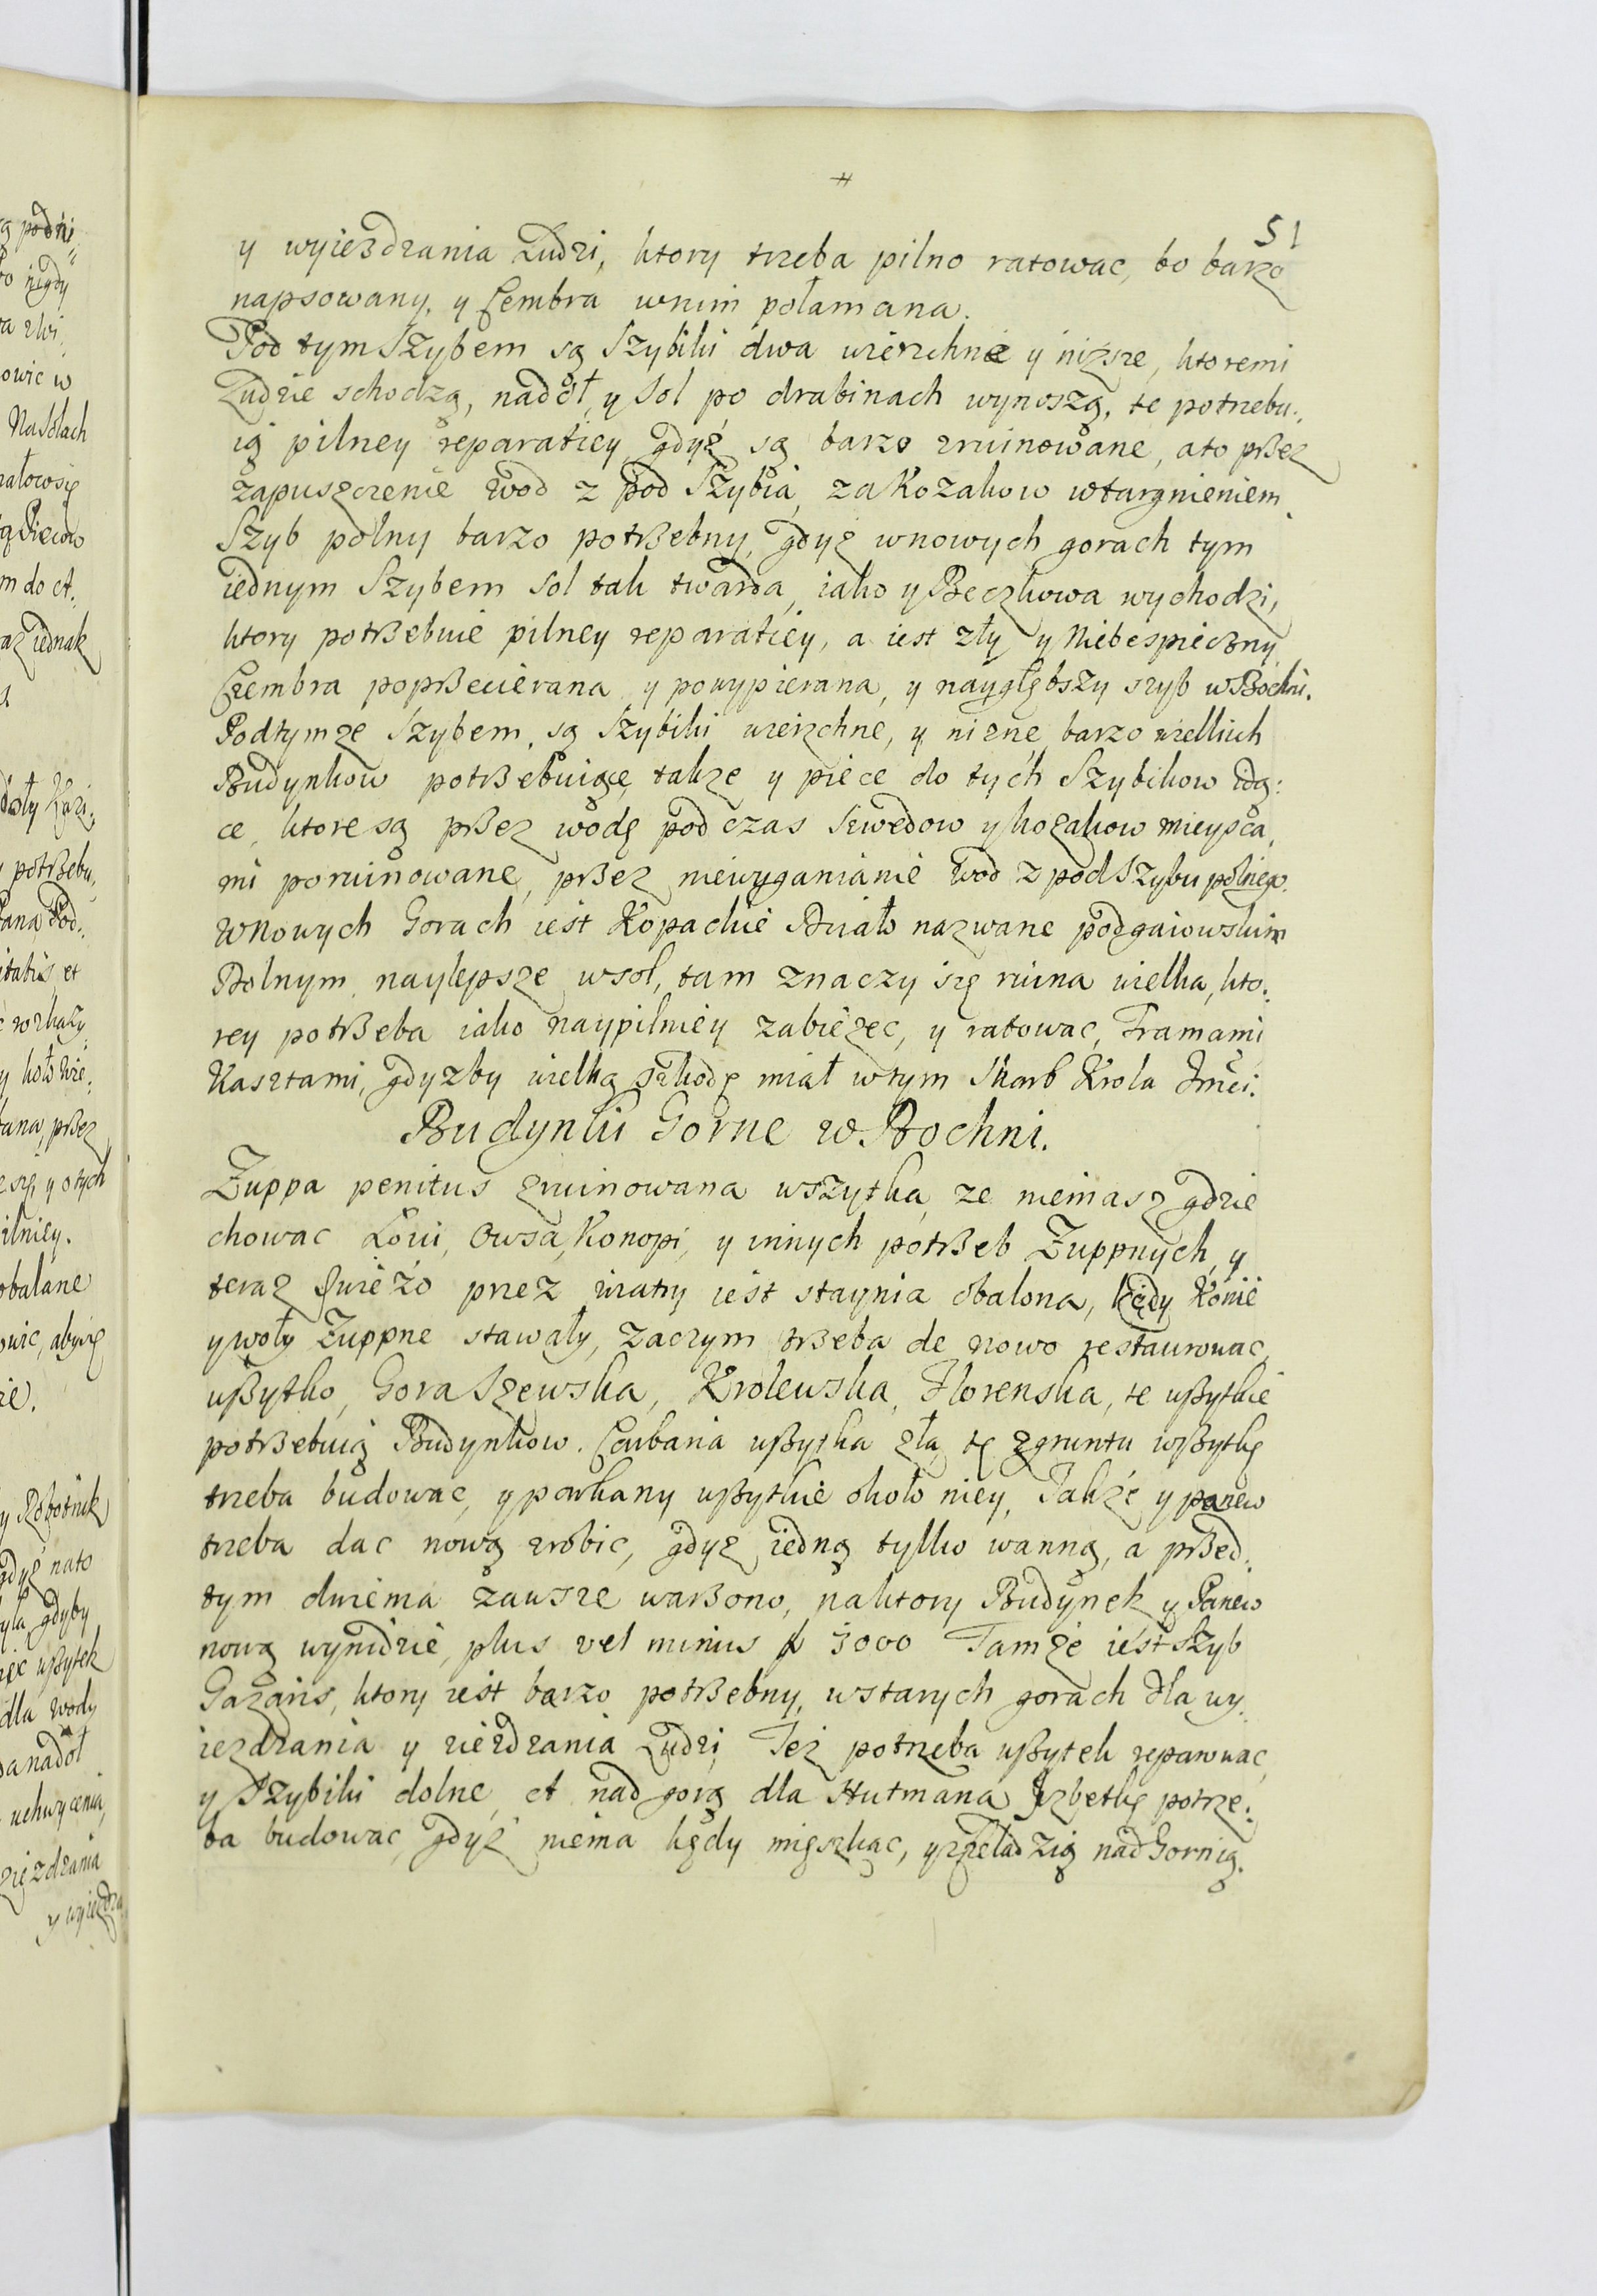 51
y wyiezdzania Ludzi, ktory trzeba pilno ratowac, bo barzo
napsowany, y Cembra wnim połamana.
Pod tym Szybem są Szybiki dwa wierzchnie y nizsze, ktoremi
Ludzie schodzą, nadoł, y Sol po drabinach wynoszą, te potrzebu:
ią pilney reparatiey, gdyż są barzo zruinowane, ato przez
zapuszczenie wod z pod Szybia, za Kozakow wtargnieniem.
Szyb polny barzo potrzebny, gdyż wnowych gorach tym
iednym Szybem Sol tak twarda, iako y Beczkowa wychodzi,
ktory potrzebuie pilney reparatiey, a iest zły y Niebespieczny
Czembra poprzecierana y powypierana, y naygłębszy szyb w Bochni.
Podtymze Szybem, są Szybiki wierzchne, y nizne barzo wielkich
Budynkow potrzebuiące, takze y piece do tych Szybikow idą:
ce, ktore są przez wodę pod czas Szwedow y kozakow mieysca,
mi poruinowane, przez niewyganianie wod z pod Szybu polnego.
wnowych Gorach iest Kopackie Działo nazwane podgaiowskim
Dolnym, naylepsze wsol, tam znaczy się ruina wielka, kto:
rey potrzeba iako naypilniey zabiezec, y ratowac, Tramami
Kasztami, gdyzby wielką szkodę miał wtym Skarb Krola Jmci.
Budynki Gorne w Bochni.
Zuppa penitus zruinowana wszytka, ze niemasz gdzie
chowac Łoiu, Owsa, Konopi, y innych potrzeb Zuppnych, y
teraz swieżo przez wiatry iest staynia obalona, kędy Konie
y woły Zuppne stawały, zaczym trzeba de nowo restaurowac
wszytko, Gora Szewska, Krolewska, Florenska, te wszytkie
potrzebuią Budynkow. Carbaria wszytka zła, tę zgruntu wszytkę
trzeba budowac, y parkany wszytkie około niey, Także y panew
trzeba dac nową zrobic, gdyz iedną tylko wanną, a przed:
tym dwiema zawsze warzono, naktory Budynek y Panew
nową wynidzie, plus vel minus f 3000 Tamże iest szyb
Gazaris, ktory iest barzo potrzebny, wstarych gorach dla wy:
iezdzania y ziezdzania Ludzi, Tez potrzeba wszytek reparowac,
y Szybiki dolne, et nad gorą dla Hutmana Jzbetkę potrze:
ba budowac, gdyż niema kędy mięszkac, y zCzeladzią nad Gornią.